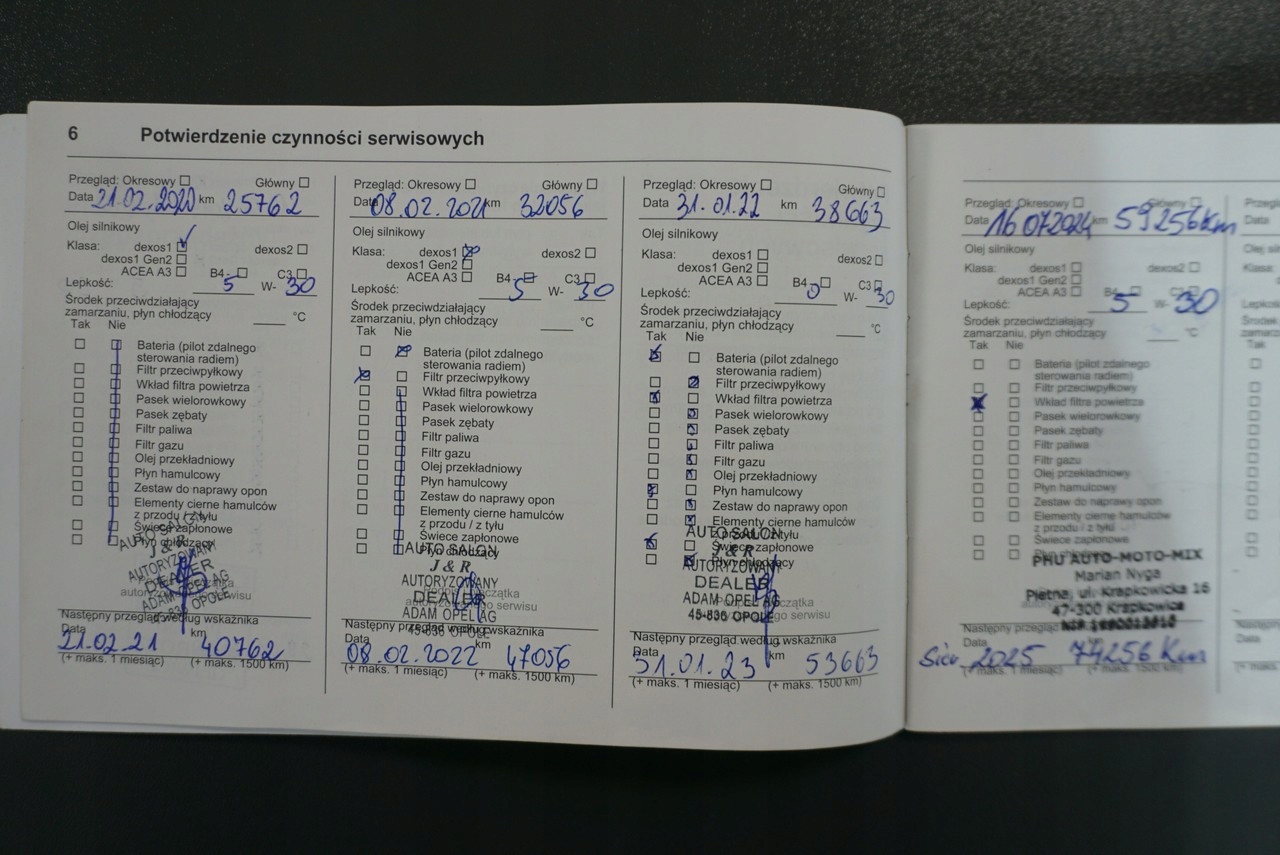 6 Potwierdzenie czynności serwisowych
Przegląd: Okresowy Główny
Data 21.02.2020 km 25762
Olej silnikowy
Klasa: dexos1 dexos2
dexos1 Gen2
ACEA A3 B4 C3
Lepkość: 5 W- 30
Środek przeciwdziałający
zamarzaniu, płyn chłodzący °C
Tak Nie
Bateria (pilot zdalnego
sterowania radiem)
Filtr przeciwpyłkowy
Wkład filtra powietrza
Pasek wielorowkowy
Pasek zębaty
Filtr paliwa
Filtr gazu
Olej przekładniowy
Płyn hamulcowy
Zestaw do naprawy opon
Elementy cierne hamulców
z przodu / z tyłu
Świece zapłonowe
Płyn chłodzący
AUTO SALON
J & R
AUTORYZOWANY
DEALER
ADAM OPEL AG
45-836 OPOLE
Następny przegląd według wskaźnika
Data km
21.02.21 40762
(+ maks. 1 miesiąc) (+ maks. 1500 km)
Przegląd: Okresowy Główny
Data 08.02.2021 km 32056
Olej silnikowy
Klasa: dexos1 dexos2
dexos1 Gen2
ACEA A3 B4 C3
Lepkość: 5 W- 30
Środek przeciwdziałający
zamarzaniu, płyn chłodzący °C
Tak Nie
Bateria (pilot zdalnego
sterowania radiem)
Filtr przeciwpyłkowy
Wkład filtra powietrza
Pasek wielorowkowy
Pasek zębaty
Filtr paliwa
Filtr gazu
Olej przekładniowy
Płyn hamulcowy
Zestaw do naprawy opon
Elementy cierne hamulców
z przodu / z tyłu
Świece zapłonowe
Płyn chłodzący
AUTO SALON
J & R
AUTORYZOWANY
DEALER
ADAM OPEL AG
45-836 OPOLE
Następny przegląd według wskaźnika
Data km
08.02.2022 47056
(+ maks. 1 miesiąc) (+ maks. 1500 km)
Przegląd: Okresowy Główny
Data 31.01.22 km 38663
Olej silnikowy
Klasa: dexos1 dexos2
dexos1 Gen2
ACEA A3 B4 C3
Lepkość: 0 W- 30
Środek przeciwdziałający
zamarzaniu, płyn chłodzący °C
Tak Nie
Bateria (pilot zdalnego
sterowania radiem)
Filtr przeciwpyłkowy
Wkład filtra powietrza
Pasek wielorowkowy
Pasek zębaty
Filtr paliwa
Filtr gazu
Olej przekładniowy
Płyn hamulcowy
Zestaw do naprawy opon
Elementy cierne hamulców
z przodu / z tyłu
Świece zapłonowe
Płyn chłodzący
AUTO SALON
J & R
AUTORYZOWANY
DEALER
ADAM OPEL AG
45-836 OPOLE
Następny przegląd według wskaźnika
Data km
31.01.23 53663
(+ maks. 1 miesiąc) (+ maks. 1500 km)
Przegląd: Okresowy Główny
Data 16.07.2024 km 59256 Km
Olej silnikowy
Klasa: dexos1 dexos2
dexos1 Gen2
ACEA A3 B4 C3
Lepkość: 5 W- 30
Środek przeciwdziałający
zamarzaniu, płyn chłodzący °C
Tak Nie
Bateria (pilot zdalnego
sterowania radiem)
Filtr przeciwpyłkowy
Wkład filtra powietrza
Pasek wielorowkowy
Pasek zębaty
Filtr paliwa
Filtr gazu
Olej przekładniowy
Płyn hamulcowy
Zestaw do naprawy opon
Elementy cierne hamulców
z przodu / z tyłu
Świece zapłonowe
PHU AUTO-MOTO-MIX
Marian Nyga
Pietna, ul. Krapkowicka 16
47-300 Krapkowice
Następny przegląd
Data
2025 74256 Km
(+ maks. 1 miesiąc) (+ maks. 1500 km)